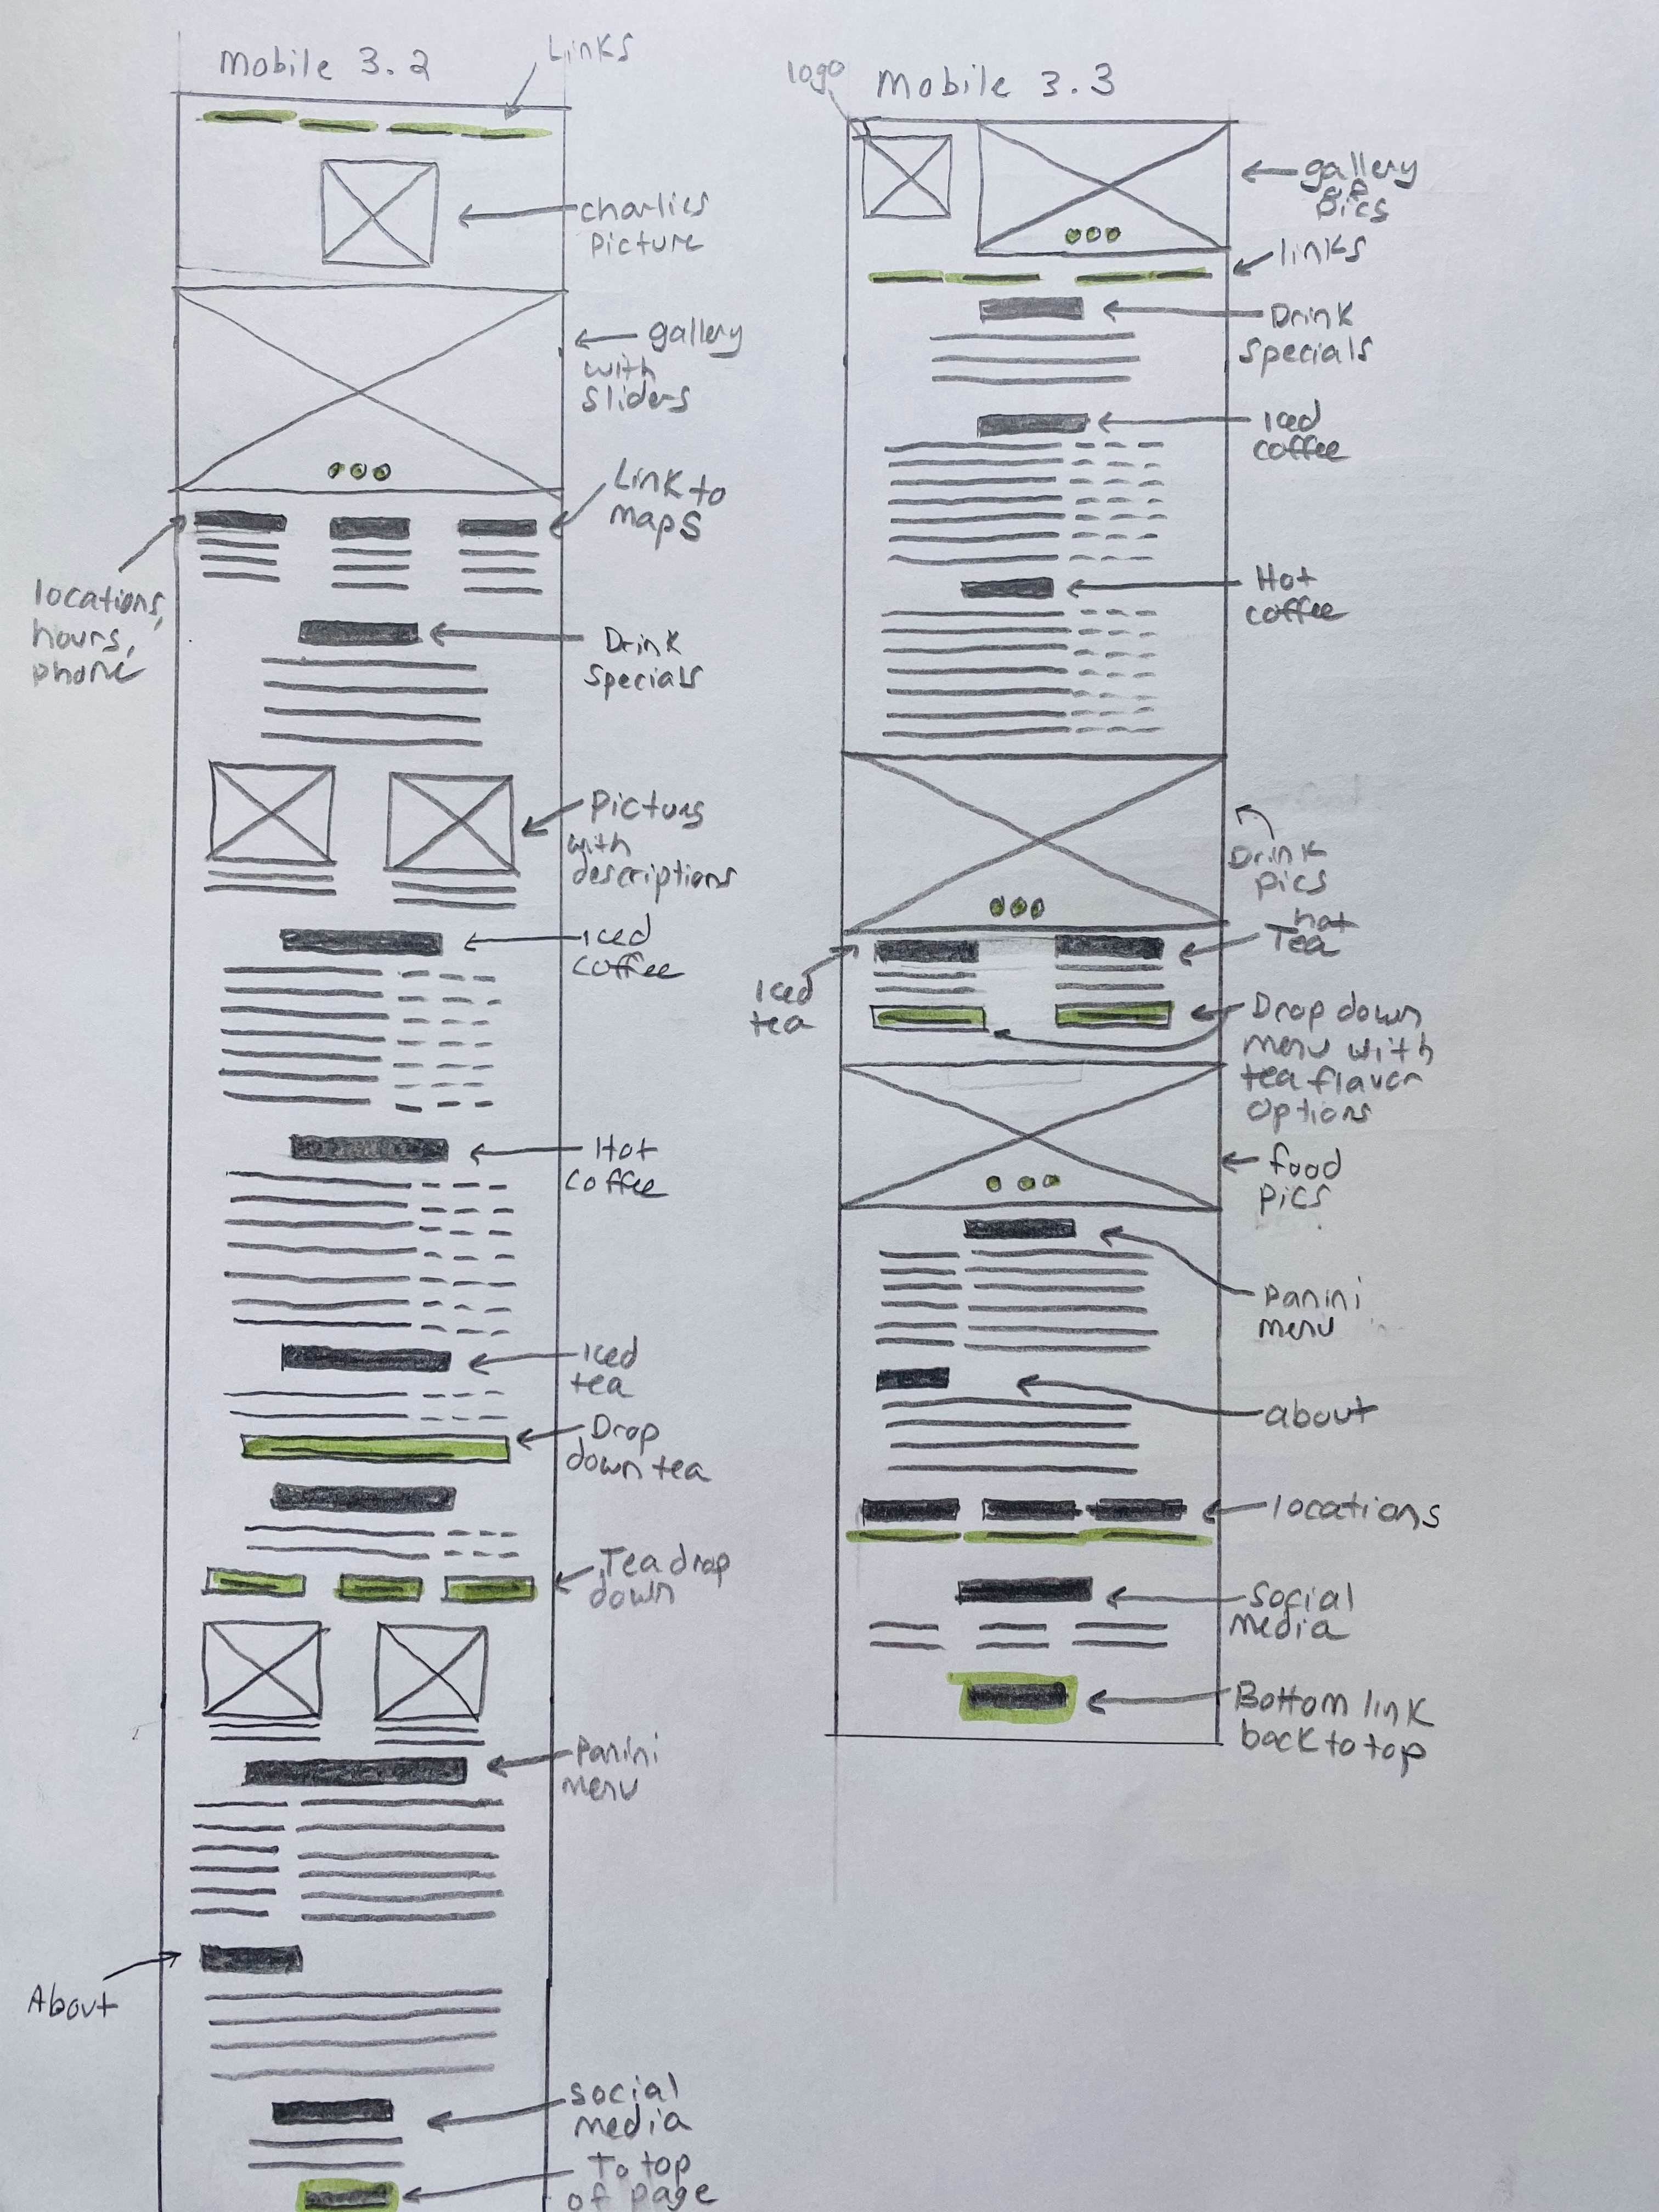 Mobile 3.2
Links
charlies
picture
gallery
with
sliders
Link to
maps
locations,
hours,
phone
Drink
specials
Pictures
with
descriptions
Iced
coffee
Hot
coffee
Iced
tea
Drop
down tea
Tea drop
down
Panini
menu
About
social
media
To top
of page
logo
Mobile 3.3
gallery
pics
links
Drink
specials
Iced
coffee
Hot
coffee
Drink
pics
hot
Tea
Iced
tea
Drop down
menu with
tea flavor
options
food
pics
panini
menu
about
locations
social
media
Bottom link
back to top